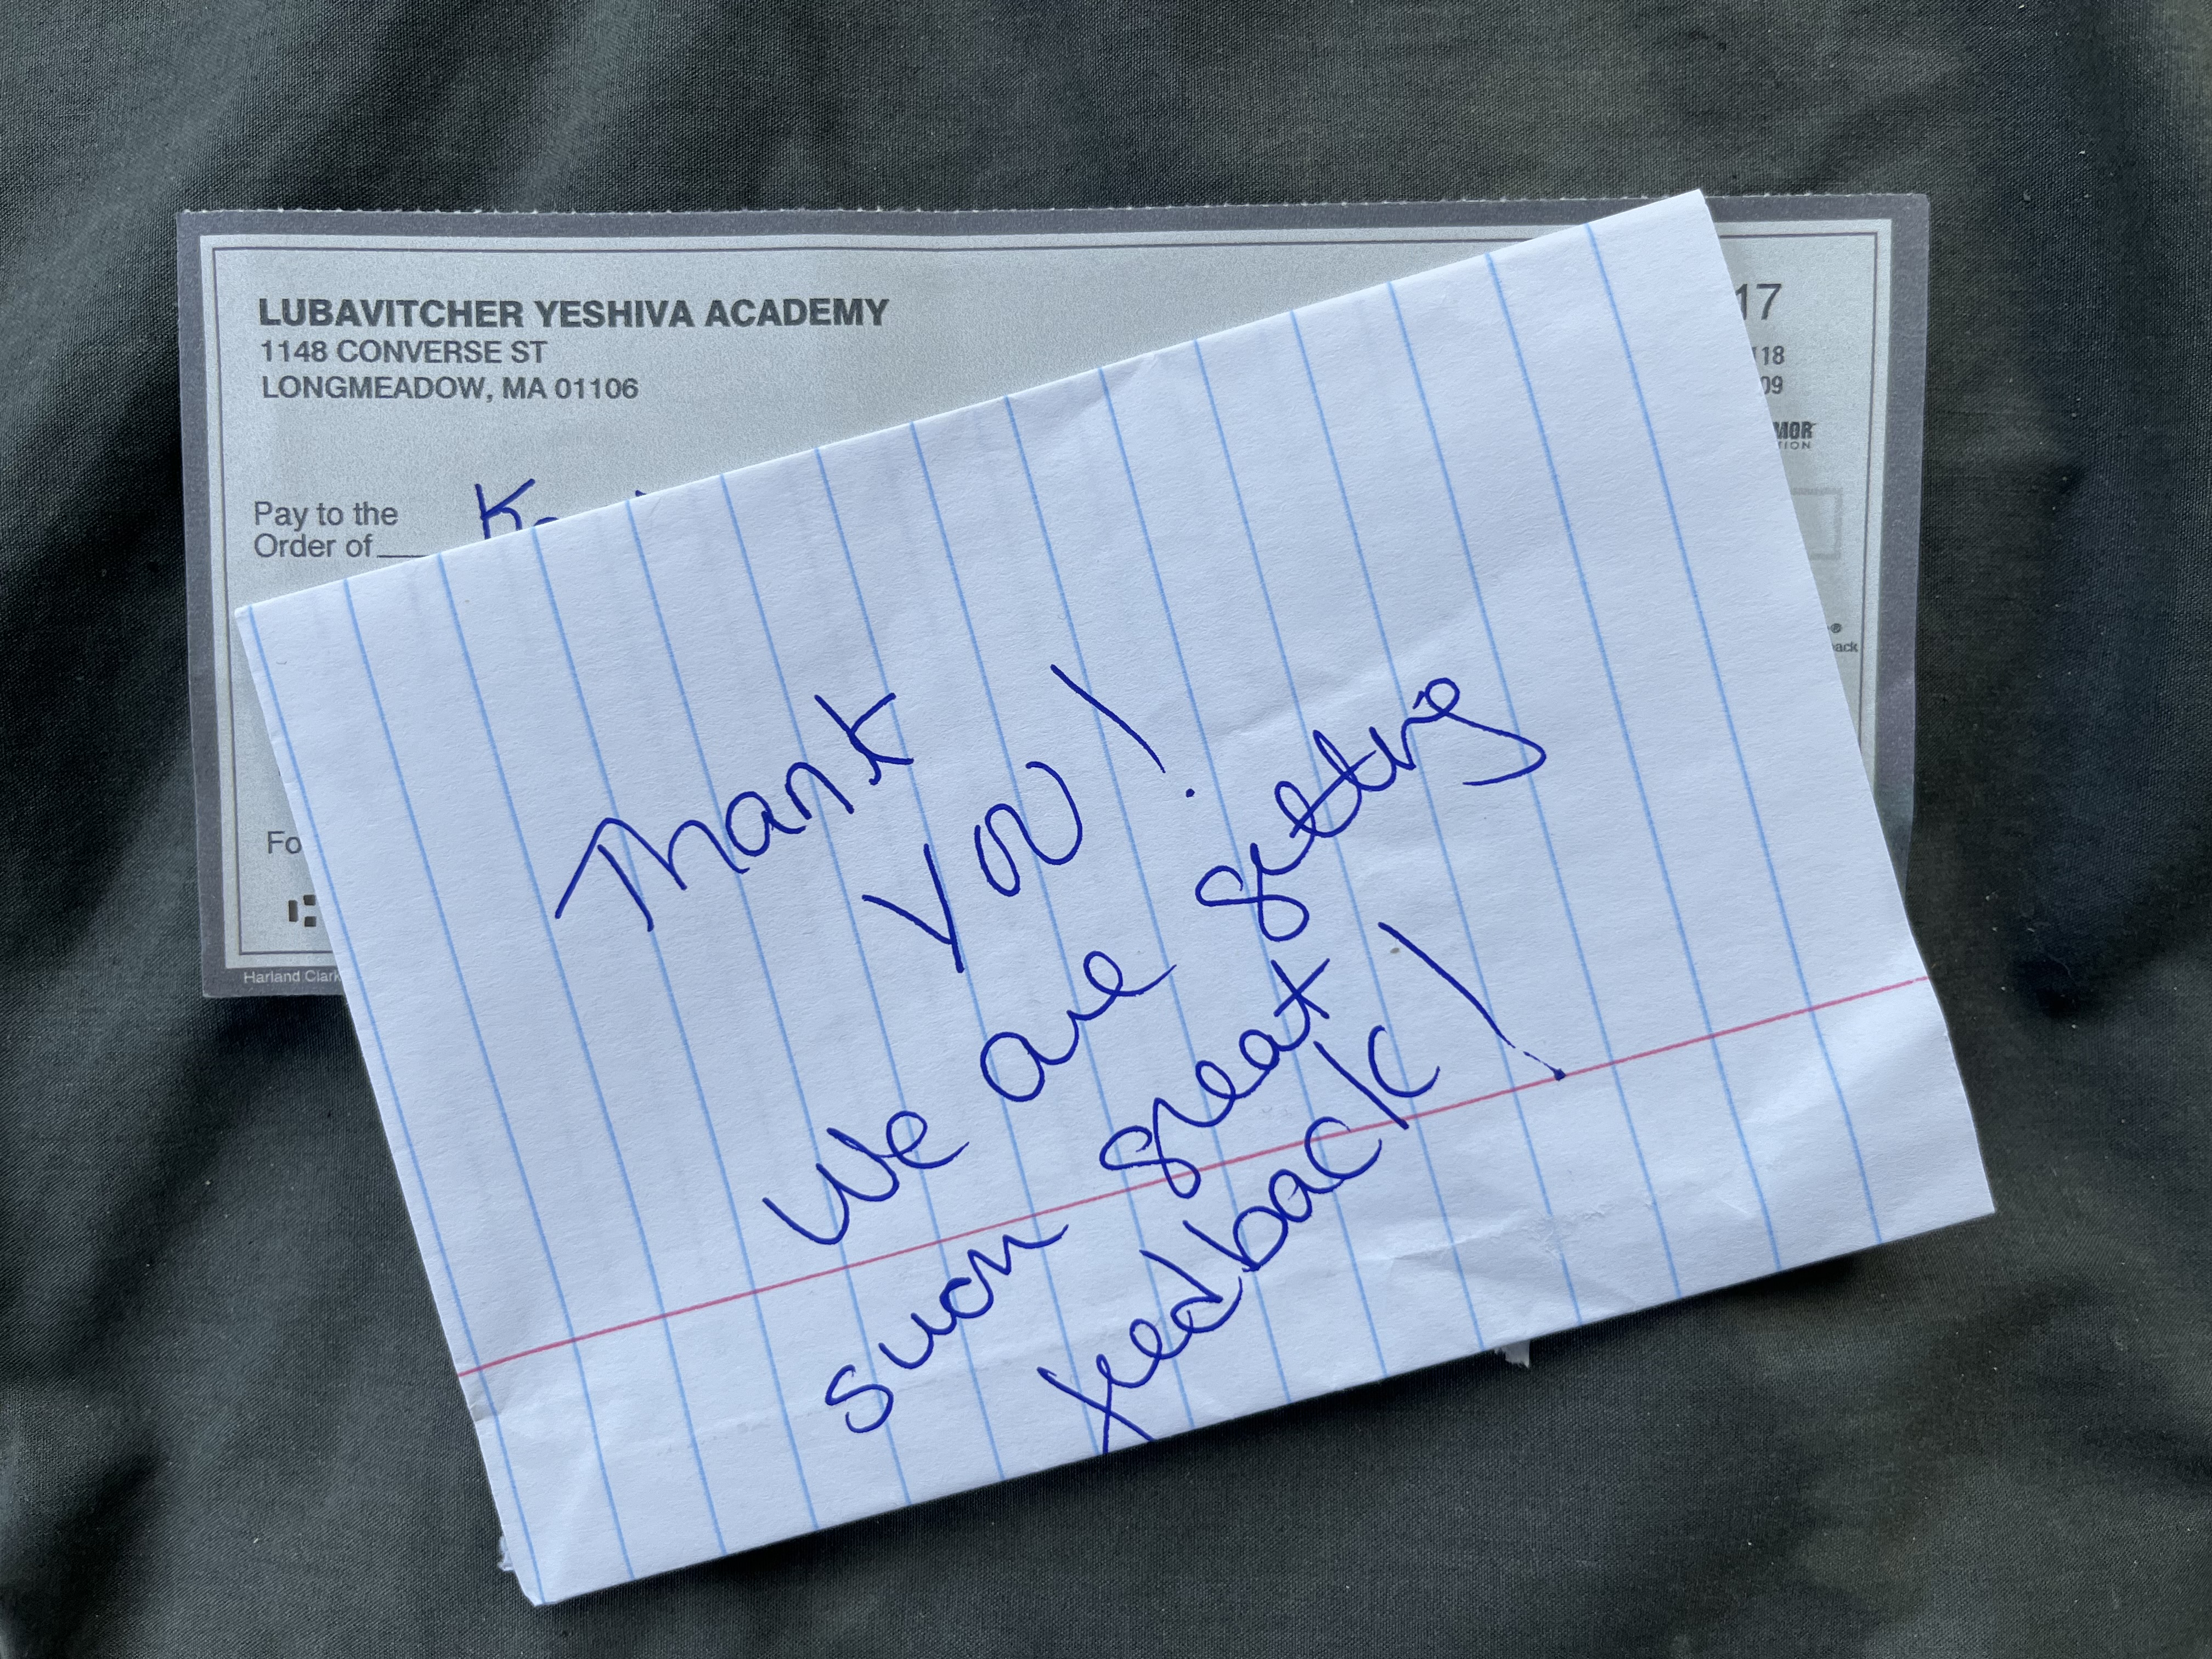 LUBAVITCHER YESHIVA ACADEMY
1148 CONVERSE ST
LONGMEADOW, MA 01106
17
118
09
MOR
TION
Pay to the
Order of
ack
Fo
Harland Clark
Thank
you!
We are getting
such great
feedback!